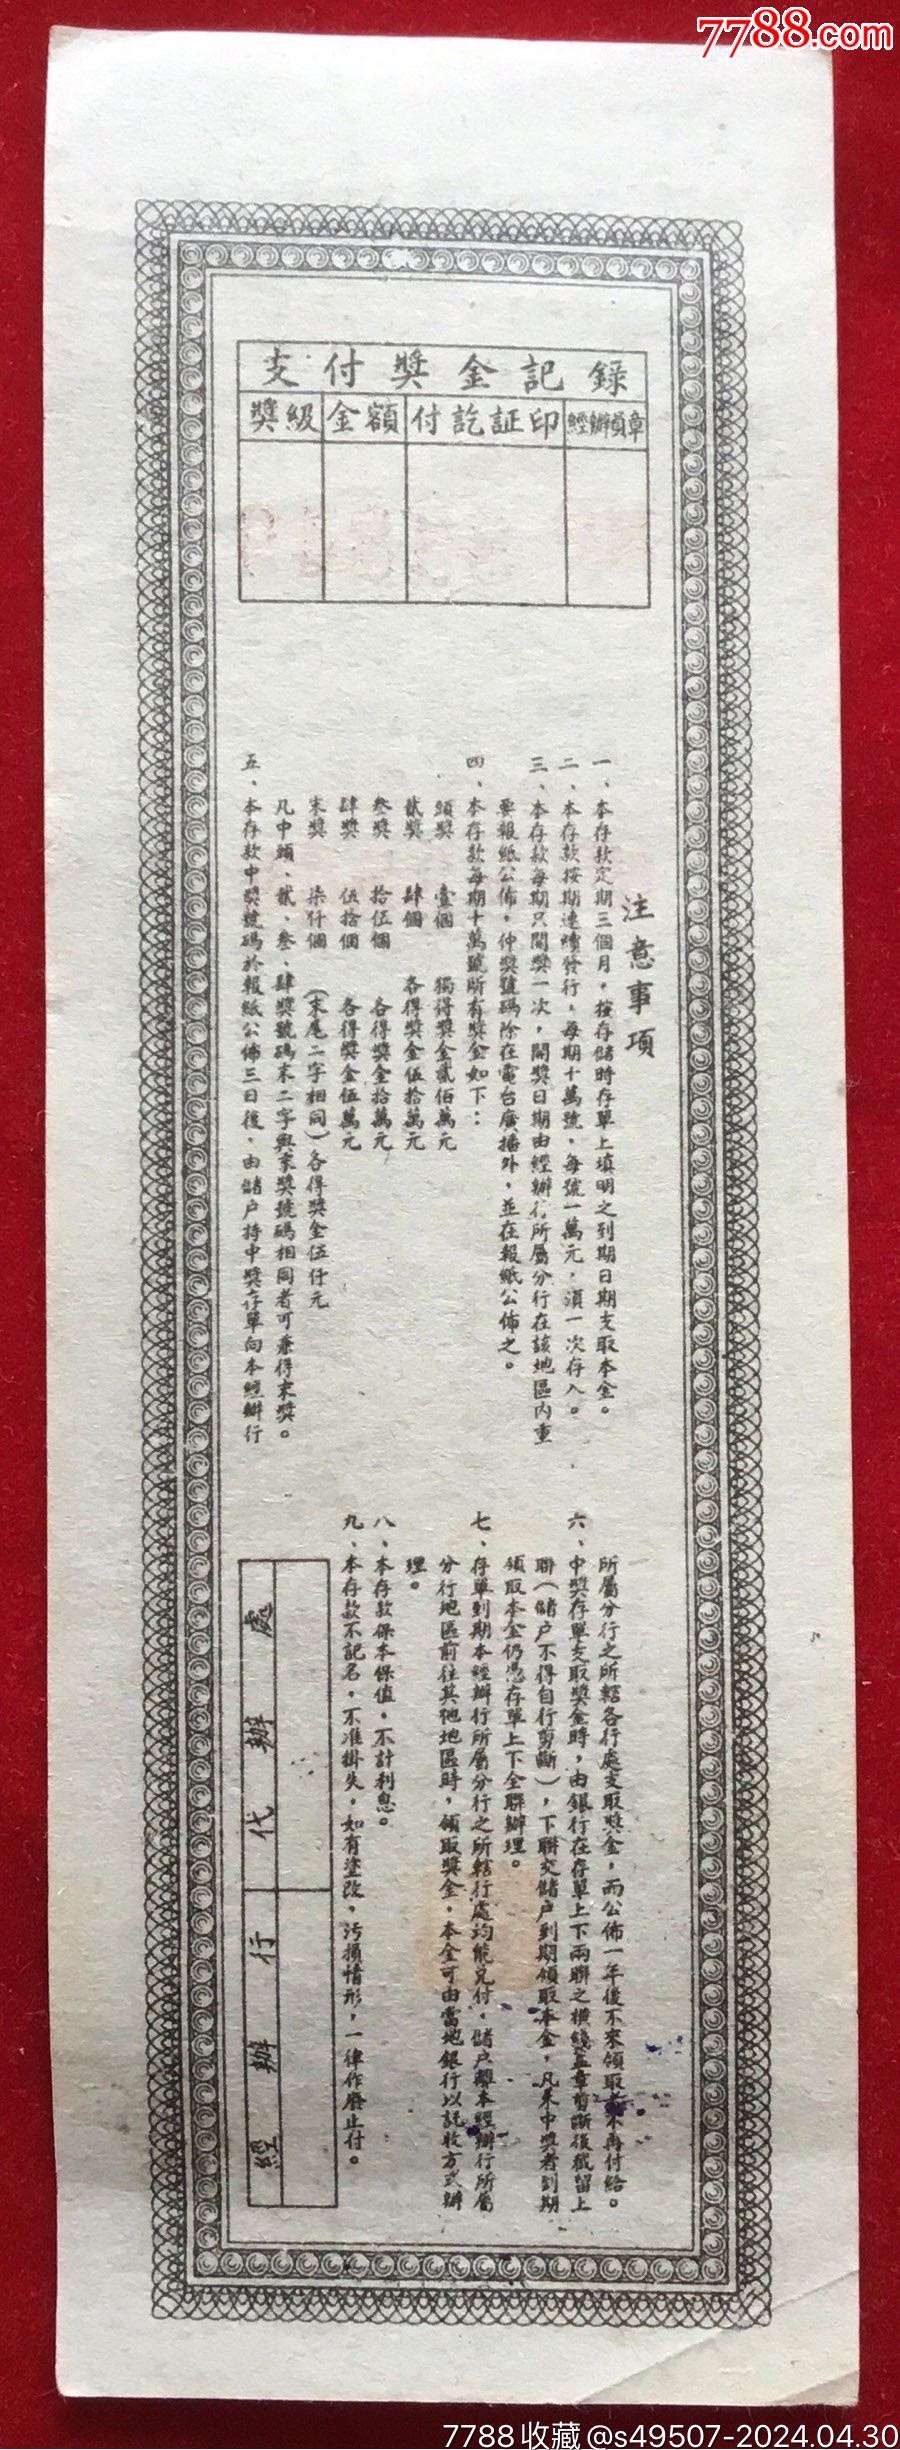 7788.com
支付獎金記錄
獎級 金額 付訖証印 經辦員章
注意事項
一、本存款定期三個月，按存儲時存單上填明之到期日期支取本金。
二、本存款按期連續發行，每期十萬號，每號一萬元，須一次存入。
三、本存款每期只開獎一次，開獎日期由經辦行所屬分行在該地區內重
要報紙公佈，仲獎號碼除在電台廣播外，並在報紙公佈之。
四、本存款每期十萬號所有獎金如下：
頭獎 壹個 獨得獎金貳佰萬元
貳獎 肆個 各得獎金伍拾萬元
叁獎 拾伍個 各得獎金拾萬元
肆獎 伍拾個 各得獎金伍萬元
末獎 柒仟個 （末尾二字相同）各得獎金伍仟元
凡中頭、貳、叁、肆獎號碼末二字與末獎號碼相同者可兼得末獎。
五、本存款中獎號碼於報紙公佈三日後，由儲户持中獎存單向本經辦行
所屬分行之所轄各行處支取獎金，而公佈一年後不來領取者不再付給。
六、中獎存單支取獎金時，由銀行在存單上下兩聯之橫綫蓋章剪斷後截留上
聯（儲户不得自行剪斷），下聯交儲户到期領取本金，凡未中獎者到期
領取本金仍憑存單上下全聯辦理。
七、存單到期本經辦行所屬分行之所轄行處均能兌付，儲户離本經辦行所屬
分行地區前往其他地區時，領取獎金，本金可由當地銀行以託收方式辦
理。
八、本存款保本保值，不計利息。
九、本存款不記名，不准掛失，如有塗改，污損情形，一律作廢止付。
經辦行
代辦處
7788收藏@s49507-2024.04.30